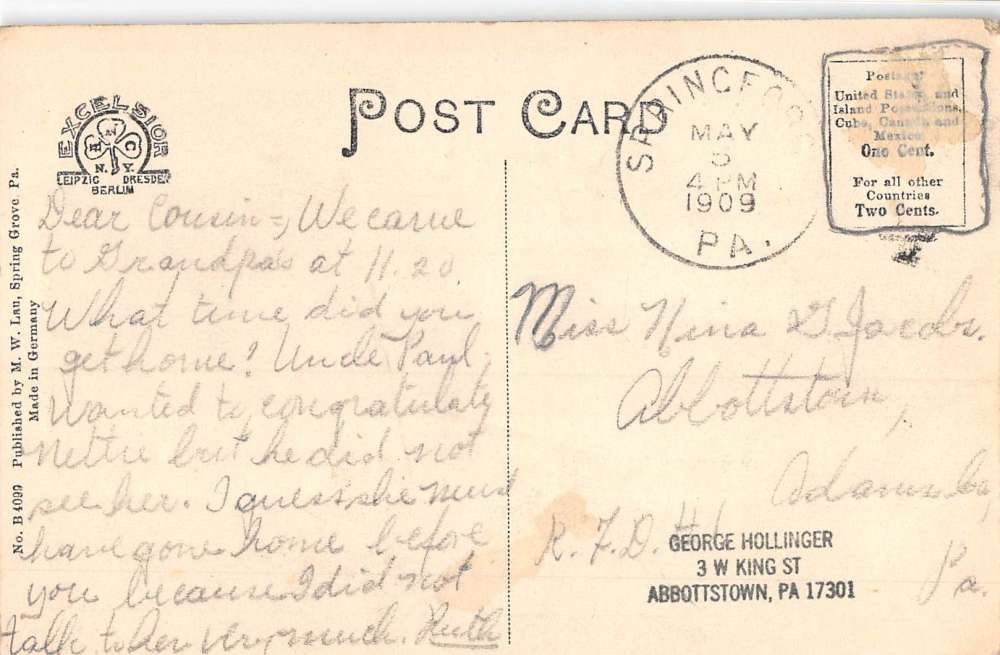 POST CARD
EXCELSIOR
H AN C
N.Y.
LEIPZIG DRESDEN
BERLIN
No. B 4099 Published by M. W. Lau, Spring Grove, Pa.
Made in Germany
MAY
5
4 PM
1909
PA.
Postage:
United States and
Island Possessions,
Cuba, Canada and
Mexico
One Cent.
For all other
Countries
Two Cents.
Dear Cousin=, We came
to Grandpas at 11.20.
What time did you
get home? Uncle Paul
wanted to congratulate
Nettie but he did not
see her. I guess she must
have gone home before
you because I did not
talk to her very much. Ruth
Miss Nina G. Jacobs.
Abbottstown,
Adams Co,
R.F.D. #1
Pa.
GEORGE HOLLINGER
3 W KING ST
ABBOTTSTOWN, PA 17301